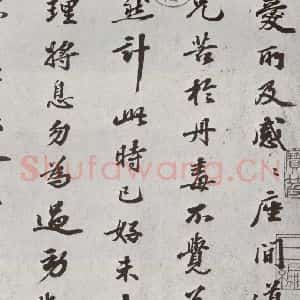 憂所及感〻座间道
兄苦於丹毒不覺
然計此時已好未
理将息勿為過動
Shufawang.CN